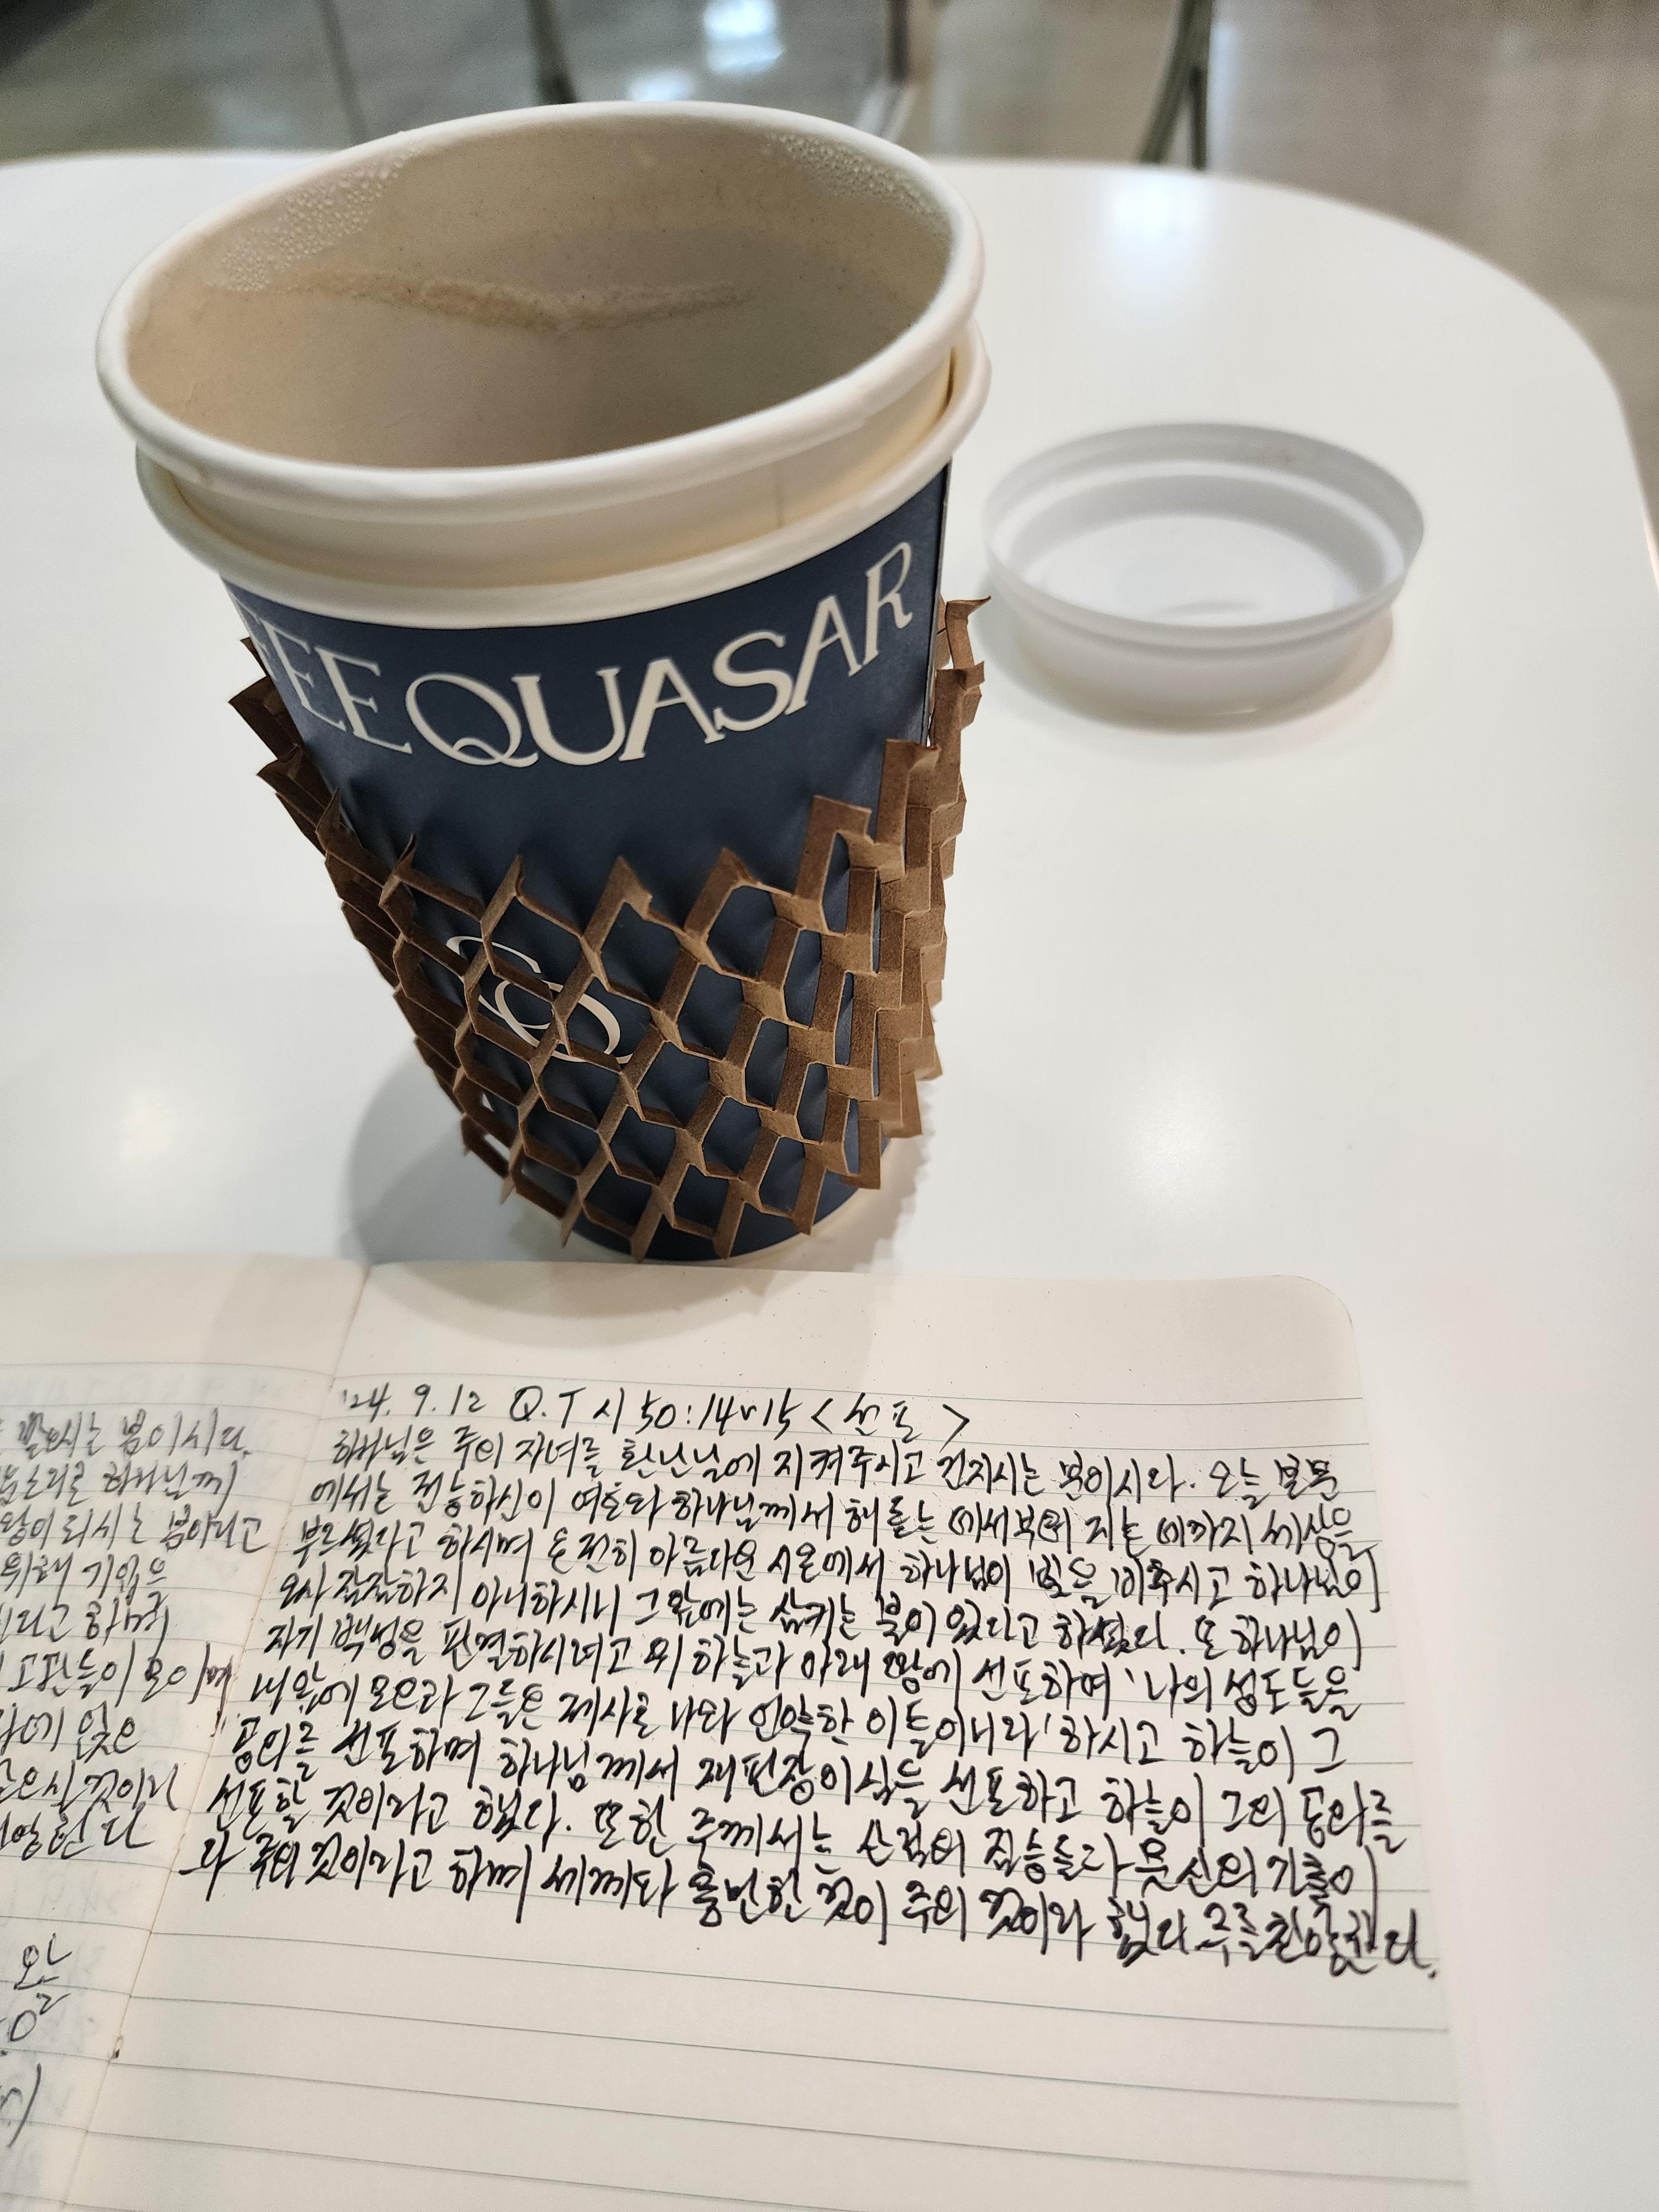 EE QUASAR
'24. 9. 12 Q.T 시 50:14~15 <선포>
하나님은 주의 자녀를 환난날에 지켜주시고 건지시는 분이시다. 오늘 본문
에서는 전능하신이 여호와 하나님께서 해 돋는 데서부터 지는 데까지 세상을
부르셨다고 하시며 온전히 아름다운 시온에서 하나님이 빛을 비추시고 하나님이
오사 잠잠하지 아니하시니 그 앞에는 삼키는 불이 있다고 하셨다. 또 하나님이
자기 백성을 판결하시려고 위 하늘과 아래 땅에 선포하여 '나의 성도들을
내 앞에 모으라 그들은 제사로 나와 언약한 이들이니라' 하시고 하늘이 그
공의를 선포하며 하나님께서 재판장이심을 선포하고 하늘이 그의 공의를
선포할 것이라고 했다. 또한 주께서는 산림의 짐승들과 뭇 산의 가축이
다 주의 것이라고 하며 세계와 충만한 것이 주의 것이라 했다 주를 찬양한다.
는 분이시다.
하나님께
왕이 되시는 분이라고
기업은
라고 하며
고관들이 모이며
것이니